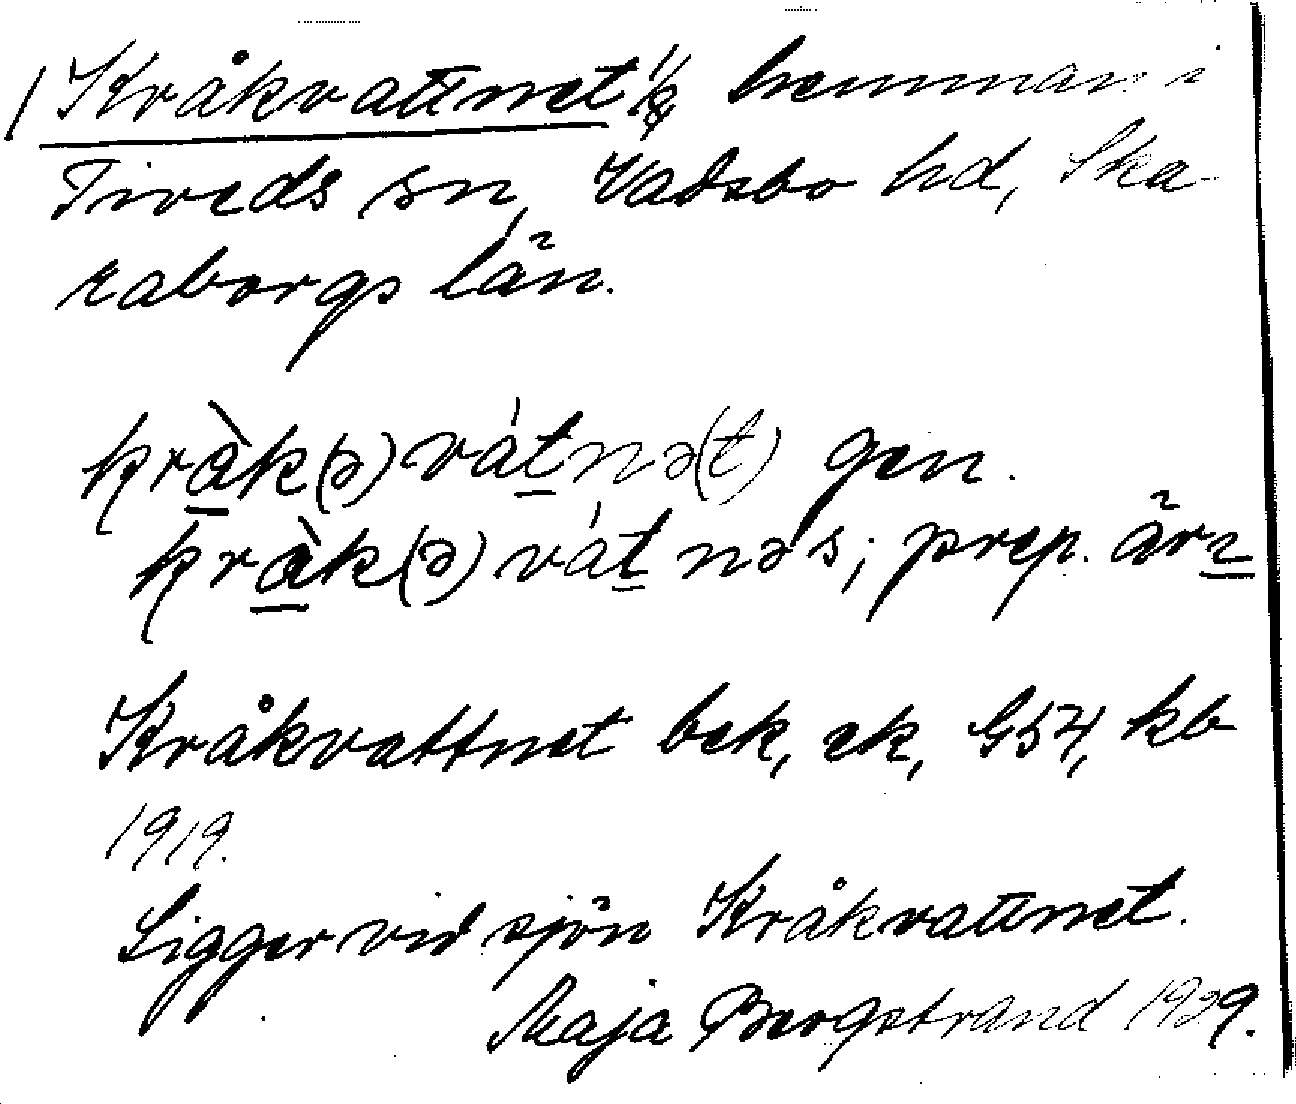 / Kråkvattnet 1/8 hemman i
Tiveds sn, Vadsbo hd, Ska
raborgs län.
kràk(ə)vátnə(t) gen.
kràk(ə)vátnəs; prep. ärɩ
Kråkvattnet bek, ek, G54, kb
1919.
Ligger vid sjön Kråkvattnet.
Maja Bergstrand 1929.